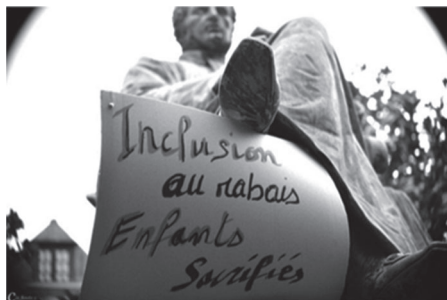 Inclusion
au rabais
Enfants
Sacrifiés